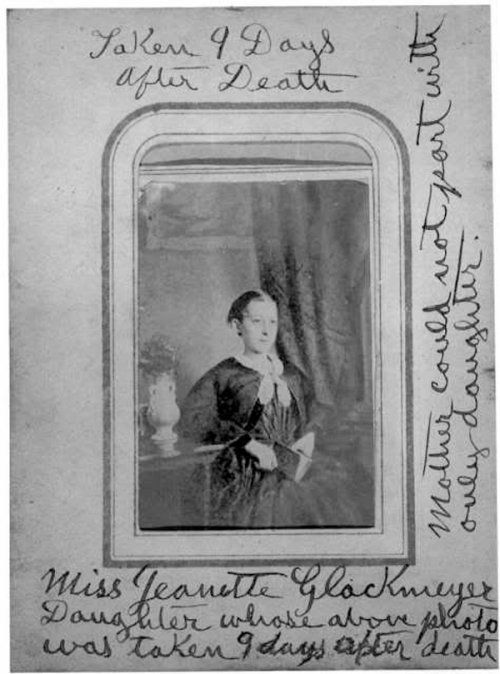 Taken 9 Days
after Death
Mother could not part with
only daughter.
Miss Jeanette Glackmeyer
Daughter whose above photo
was taken 9 days after death